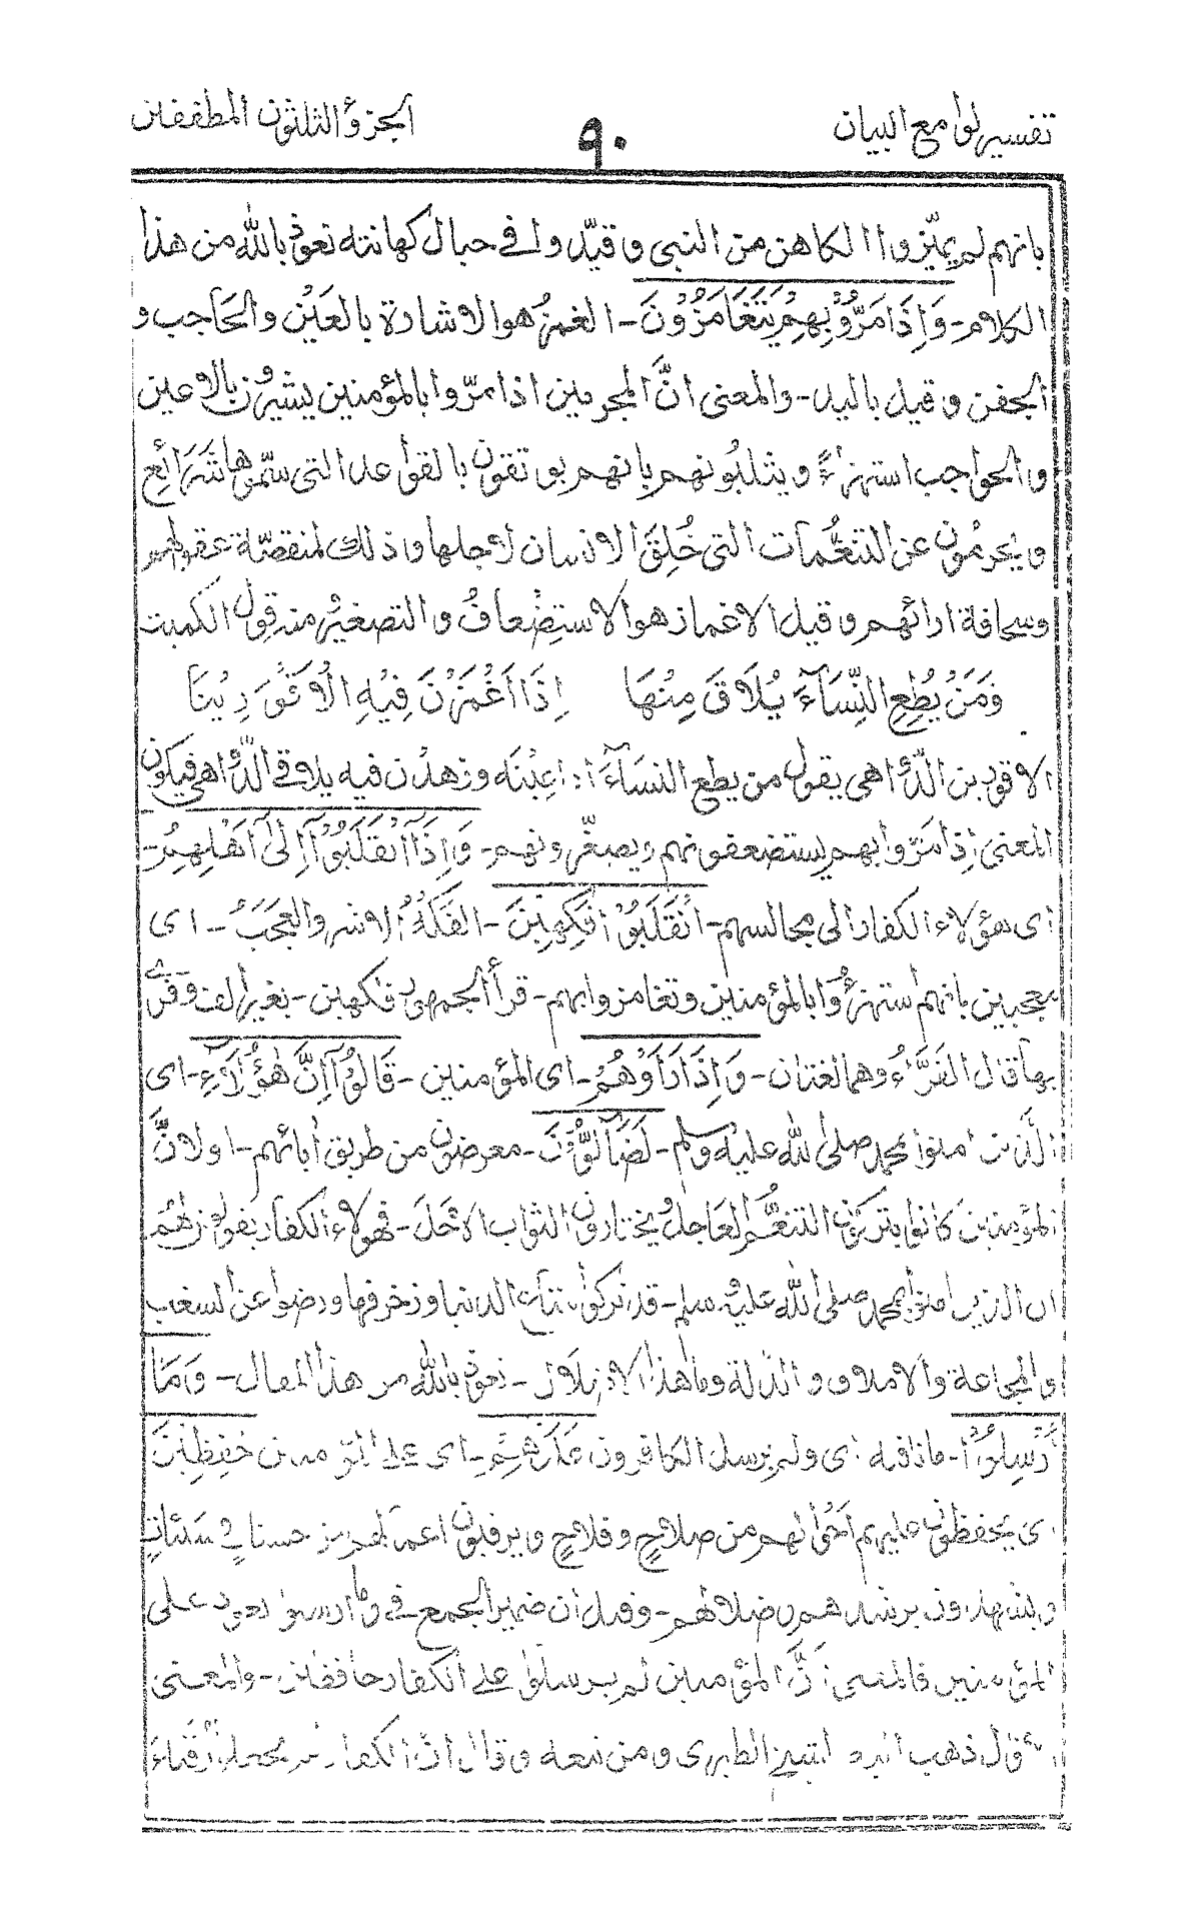 تفسير لوامع البيان
٩٠
الجزؤ الثلثون المطففين
بانهم لم يميّزوا الكاهن من النبى وقيّدوا فى حبال كهانته نعوذ بالله من هذا
الكلام - وَاِذَا مَرُّوْا بِهِمْ يَتَغَامَزُوْنَ - الغمزُ هو الاشارة بالعَيْن والحَاجب و
الجفن وقيل باليد - والمعنى انَّ المجرمين اذا مرّوا بالمؤمنين يشيرون بالاعين
والحواجب استهزاءً ويثلبُونهم بانهم يوتقون بالقواعد التى سمّوها شَرَائع
ويحرمُون عن التنعُّمات التى خُلِقَ الانسان لاجلها وذلك لمنقصَة عقولهم
وسخافة ارائهم وقيل الاغماز هو الاستِضْعافُ والتصغيرُ منه قول الكميت
وَمَنْ يُطِعِ النِّسَآءَ يُلَاقَ مِنْهَا اِذَا اَغْمَزْنَ فِيْهِ الْاَقْوَرِيْنَا
الاقورين الدّواهى يقول من يطع النسآءَ اذا عبْنَه وزهدْن فيه يلاقى الدّواهى فيكون
المعنى اِذا مَرّوا بهم يستضعفونهم ويصغّرونهم - وَاِذَا انْقَلَبُوْآ اِلٰى اَهْلِهِمُ -
اى هؤلاء الكفار الى مجالسهم - انْقَلَبُوْا فٰكِهِيْنَ - الفَكَهُ الاشر والعجَبُ - اى
معجبين بانهم استهزؤُا بالمؤمنين وتغامزوا بهم - قرأ الجمهور فٰكهين - بغير الف وقرئ
بها قال الفَرَّاءُ وهما لغتان - وَاِذَا رَاَوْهُمْ - اى المؤمنين - قَالُوْآ اِنَّ هٰؤُلَآءِ - اى
الَّذين امنوا بمحمد صلى الله عليه وسلم - لَضَآلُّوْنَ - معرضون من طريق اٰبائهم - او لانَّ
المؤمنين كانوا يتركون التنعُّم العَاجل ويختارون الثواب الاٰجَل - فهولاء الكفار يقولون لهُم
ان الذين امنوا بمحمد صلى الله عليه وسلم - قد تركوا متاع الدنيا وزخرفها ورضوا عن السغب
والمجاعة والاملاق والذلة وما هذا الا ضلال - نعوذ بالله من هذا المقال - وَمَآ
اُرْسِلُوْا - ما نافية اى ولم يرسل الكافرون عَلَيْهِمْ - اى على المؤمنين حٰفِظِيْنَ
اى يحفظون عليهم اَحْوالهم من صلاحٍ وفلاحٍ ويرقبون اعمالهم من حسنات وسَيّئاتٍ
ويشهدون برشدهم وضلالهم - وقيل ان ضمير الجمع فى وما ارسلوا يعود على
المؤمنين فالمعنى اَنَّ المؤمنين لم يرسلوا على الكفار حافظين - والمعنى
الاول ذهب اليه الطبرى ومن تبعه وقال انّ الكفار لم يجعلوا رُقَبَاءَ